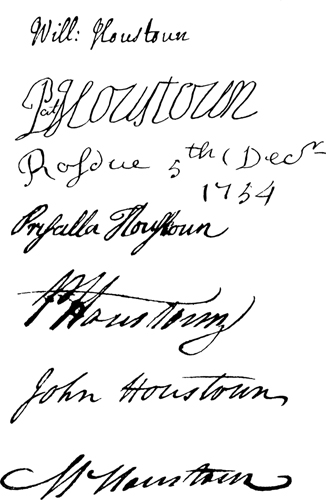 Will: Houstoun
Pat Houstoun
Rosdue 5th Decr
1754
Prysalla Houstoun
P Houstoun
John Houstoun
W Houstoun